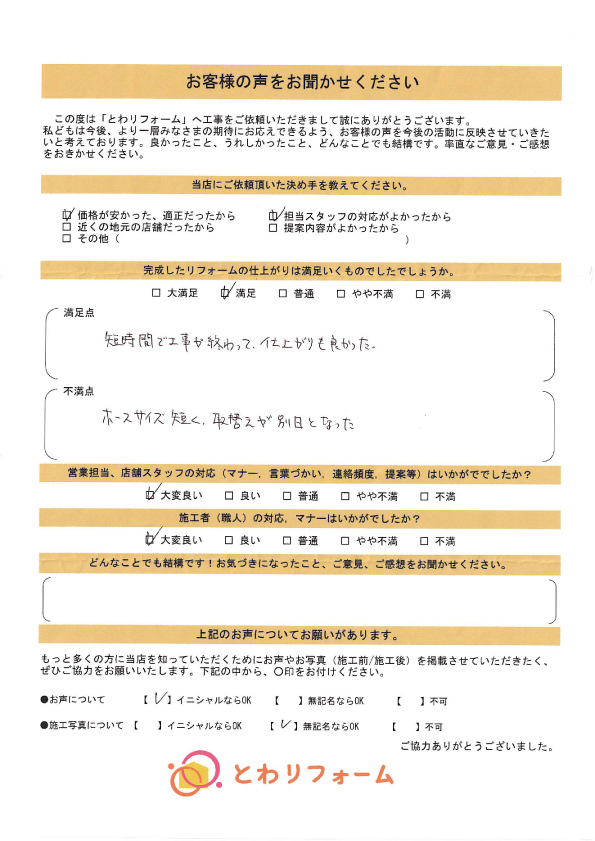 お客様の声をお聞かせください
この度は「とわリフォーム」へ工事をご依頼いただきまして誠にありがとうございます。
私どもは今後、より一層みなさまの期待にお応えできるよう、お客様の声を今後の活動に反映させていきた
いと考えております。良かったこと、うれしかったこと、どんなことでも結構です。率直なご意見・ご感想
をおきかせください。
当店にご依頼頂いた決め手を教えてください。
☑ 価格が安かった、適正だったから ☑ 担当スタッフの対応がよかったから
□ 近くの地元の店舗だったから □ 提案内容がよかったから
□ その他（ ）
完成したリフォームの仕上がりは満足いくものでしたでしょうか。
□ 大満足 ☑ 満足 □ 普通 □ やや不満 □ 不満
満足点
短時間で工事が終わって、仕上がりも良かった。
不満点
ホースサイズ短く、取替えが別日となった
営業担当、店舗スタッフの対応（マナー, 言葉づかい, 連絡頻度, 提案等）はいかがででしたか？
☑ 大変良い □ 良い □ 普通 □ やや不満 □ 不満
施工者（職人）の対応, マナーはいかがでしたか？
☑ 大変良い □ 良い □ 普通 □ やや不満 □ 不満
どんなことでも結構です！お気づきになったこと、ご意見、ご感想をお聞かせください。
上記のお声についてお願いがあります。
もっと多くの方に当店を知っていただくためにお声やお写真（施工前/施工後）を掲載させていただきたく、
ぜひご協力をお願いいたします。下記の中から、〇印をお付けください。
●お声について 【 ✓ 】イニシャルならOK 【 】無記名ならOK 【 】不可
●施工写真について 【 】イニシャルならOK 【 ✓ 】無記名ならOK 【 】不可
ご協力ありがとうございました。
とわリフォーム